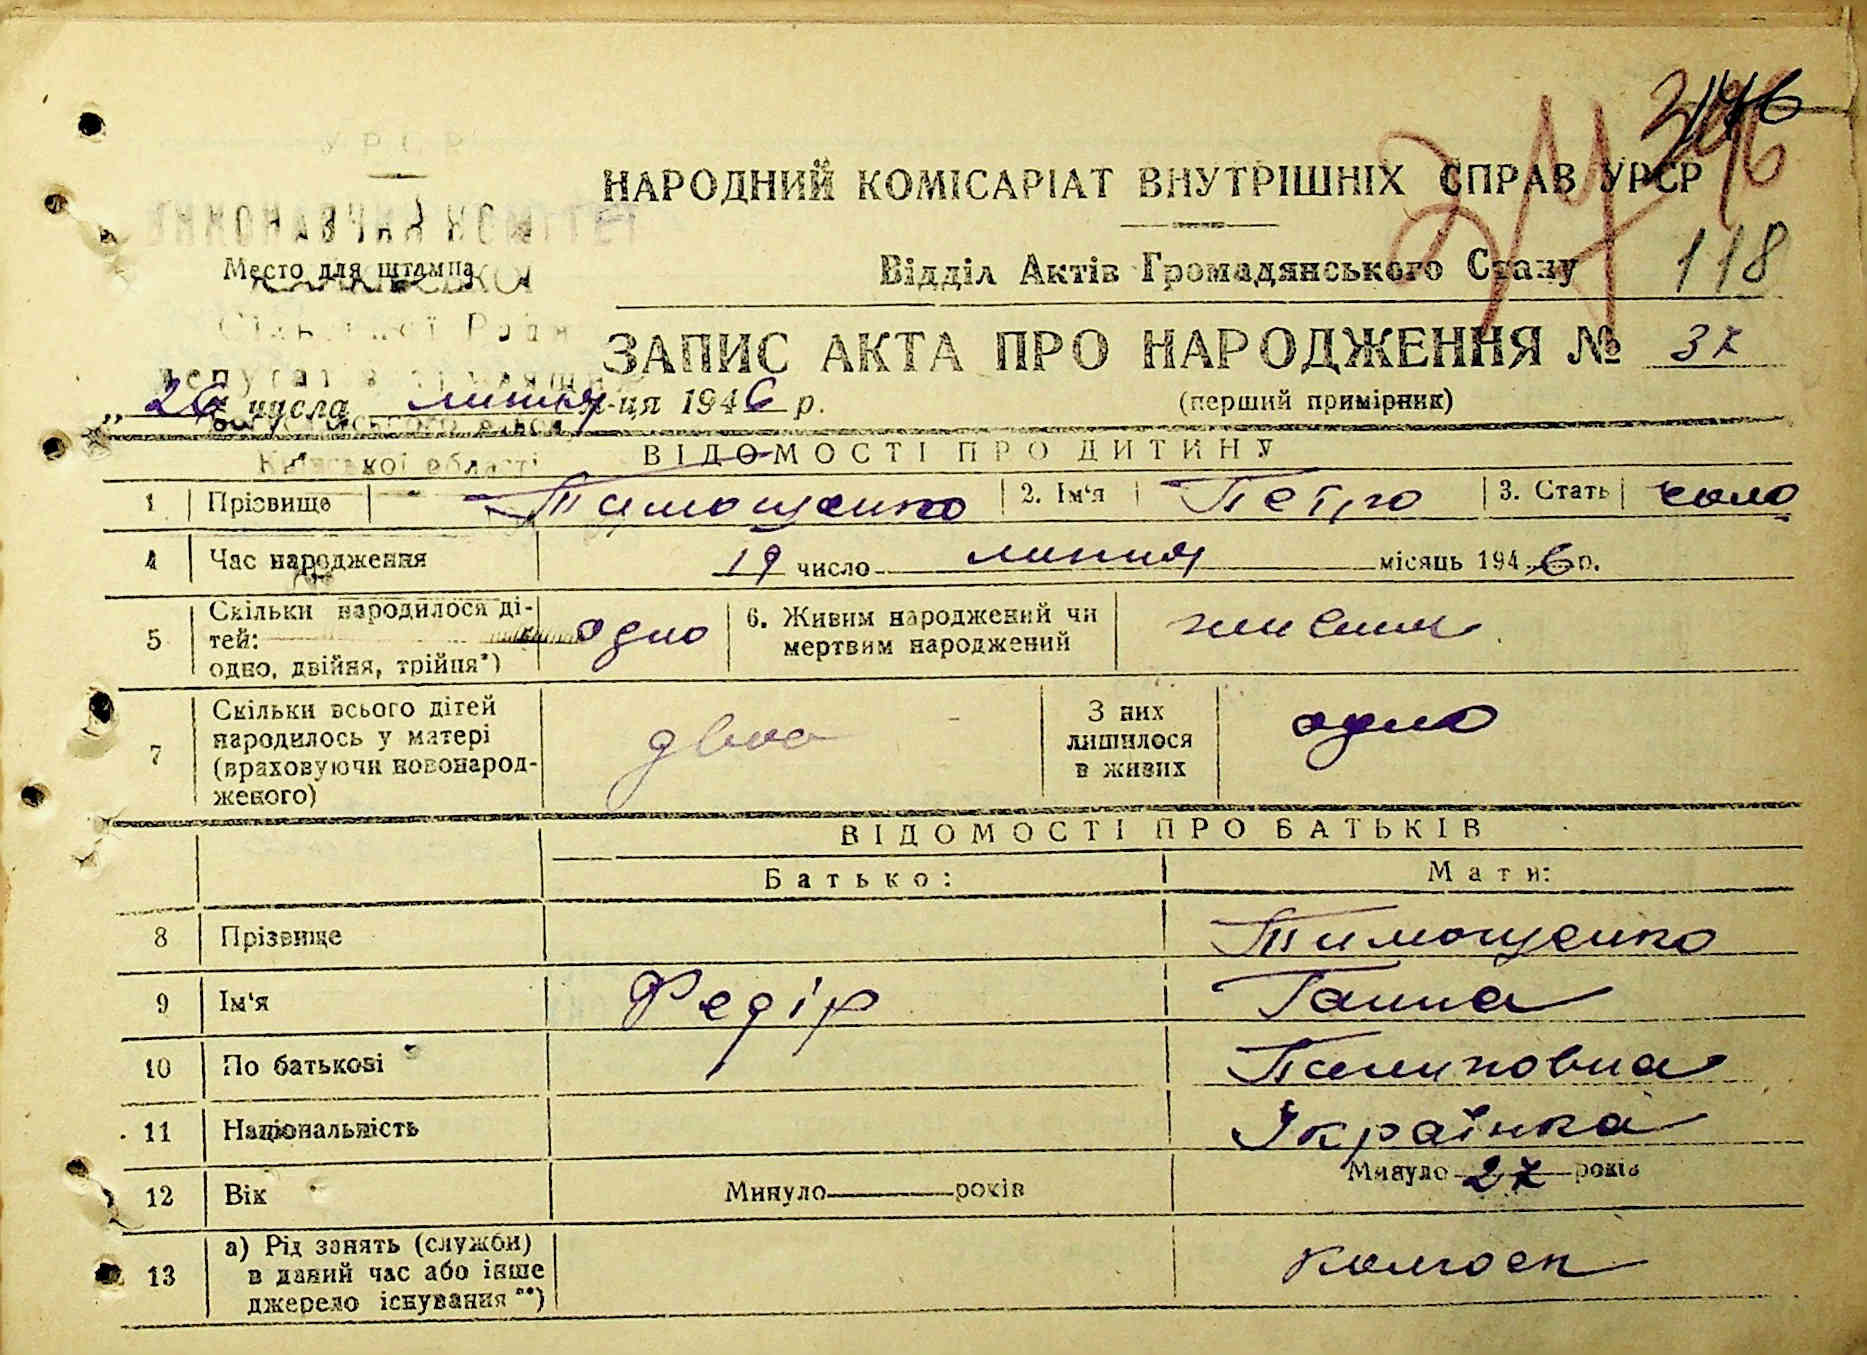 346
146
НАРОДНИЙ КОМІСАРІАТ ВНУТРІШНІХ СПРАВ УРСР
УРСР
Место для штампа
Відділ Актів Громадянського Стану
118
ЗАПИС АКТА ПРО НАРОДЖЕННЯ № 37
„ 26 числа липня м-ця 1946 р.
(перший примірник)
Київської області
ВІДОМОСТІ ПРО ДИТИНУ
1 Прізвище Тимощенко 2. Ім'я Петро 3. Стать чоло
4 Час народження 19 число липня місяць 1946 р.
5 Скільки народилося ді-
тей:
одно, двійня, трійня*) одно
6. Живим народжений чи
мертвим народжений живим
7 Скільки всього дітей
народилось у матері
(враховуючи новонарод-
женого) двоє
З них
лишилося
в живих одно
ВІДОМОСТІ ПРО БАТЬКІВ
Батько: Мати:
8 Прізвище Тимощенко
9 Ім'я Федір Ганна
10 По батькові
11 Національність Українка
12 Вік Минуло років Минуло 27 років
13 а) Рід занять (служби)
в даний час або інше
джерело існування **) колгосп